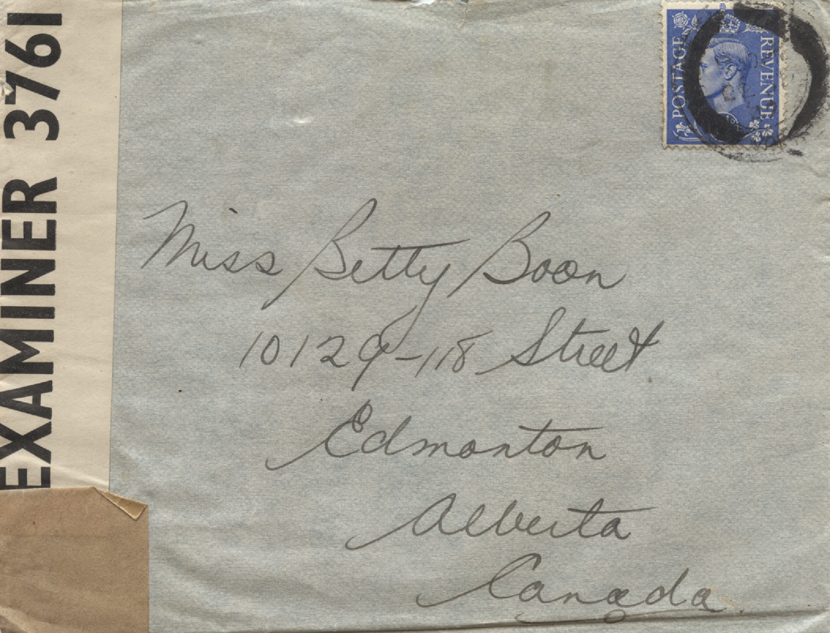 EXAMINER 3761
POSTAGE
REVENUE
Miss Betty Boon
10129-118 Street
Edmonton
Alberta
Canada